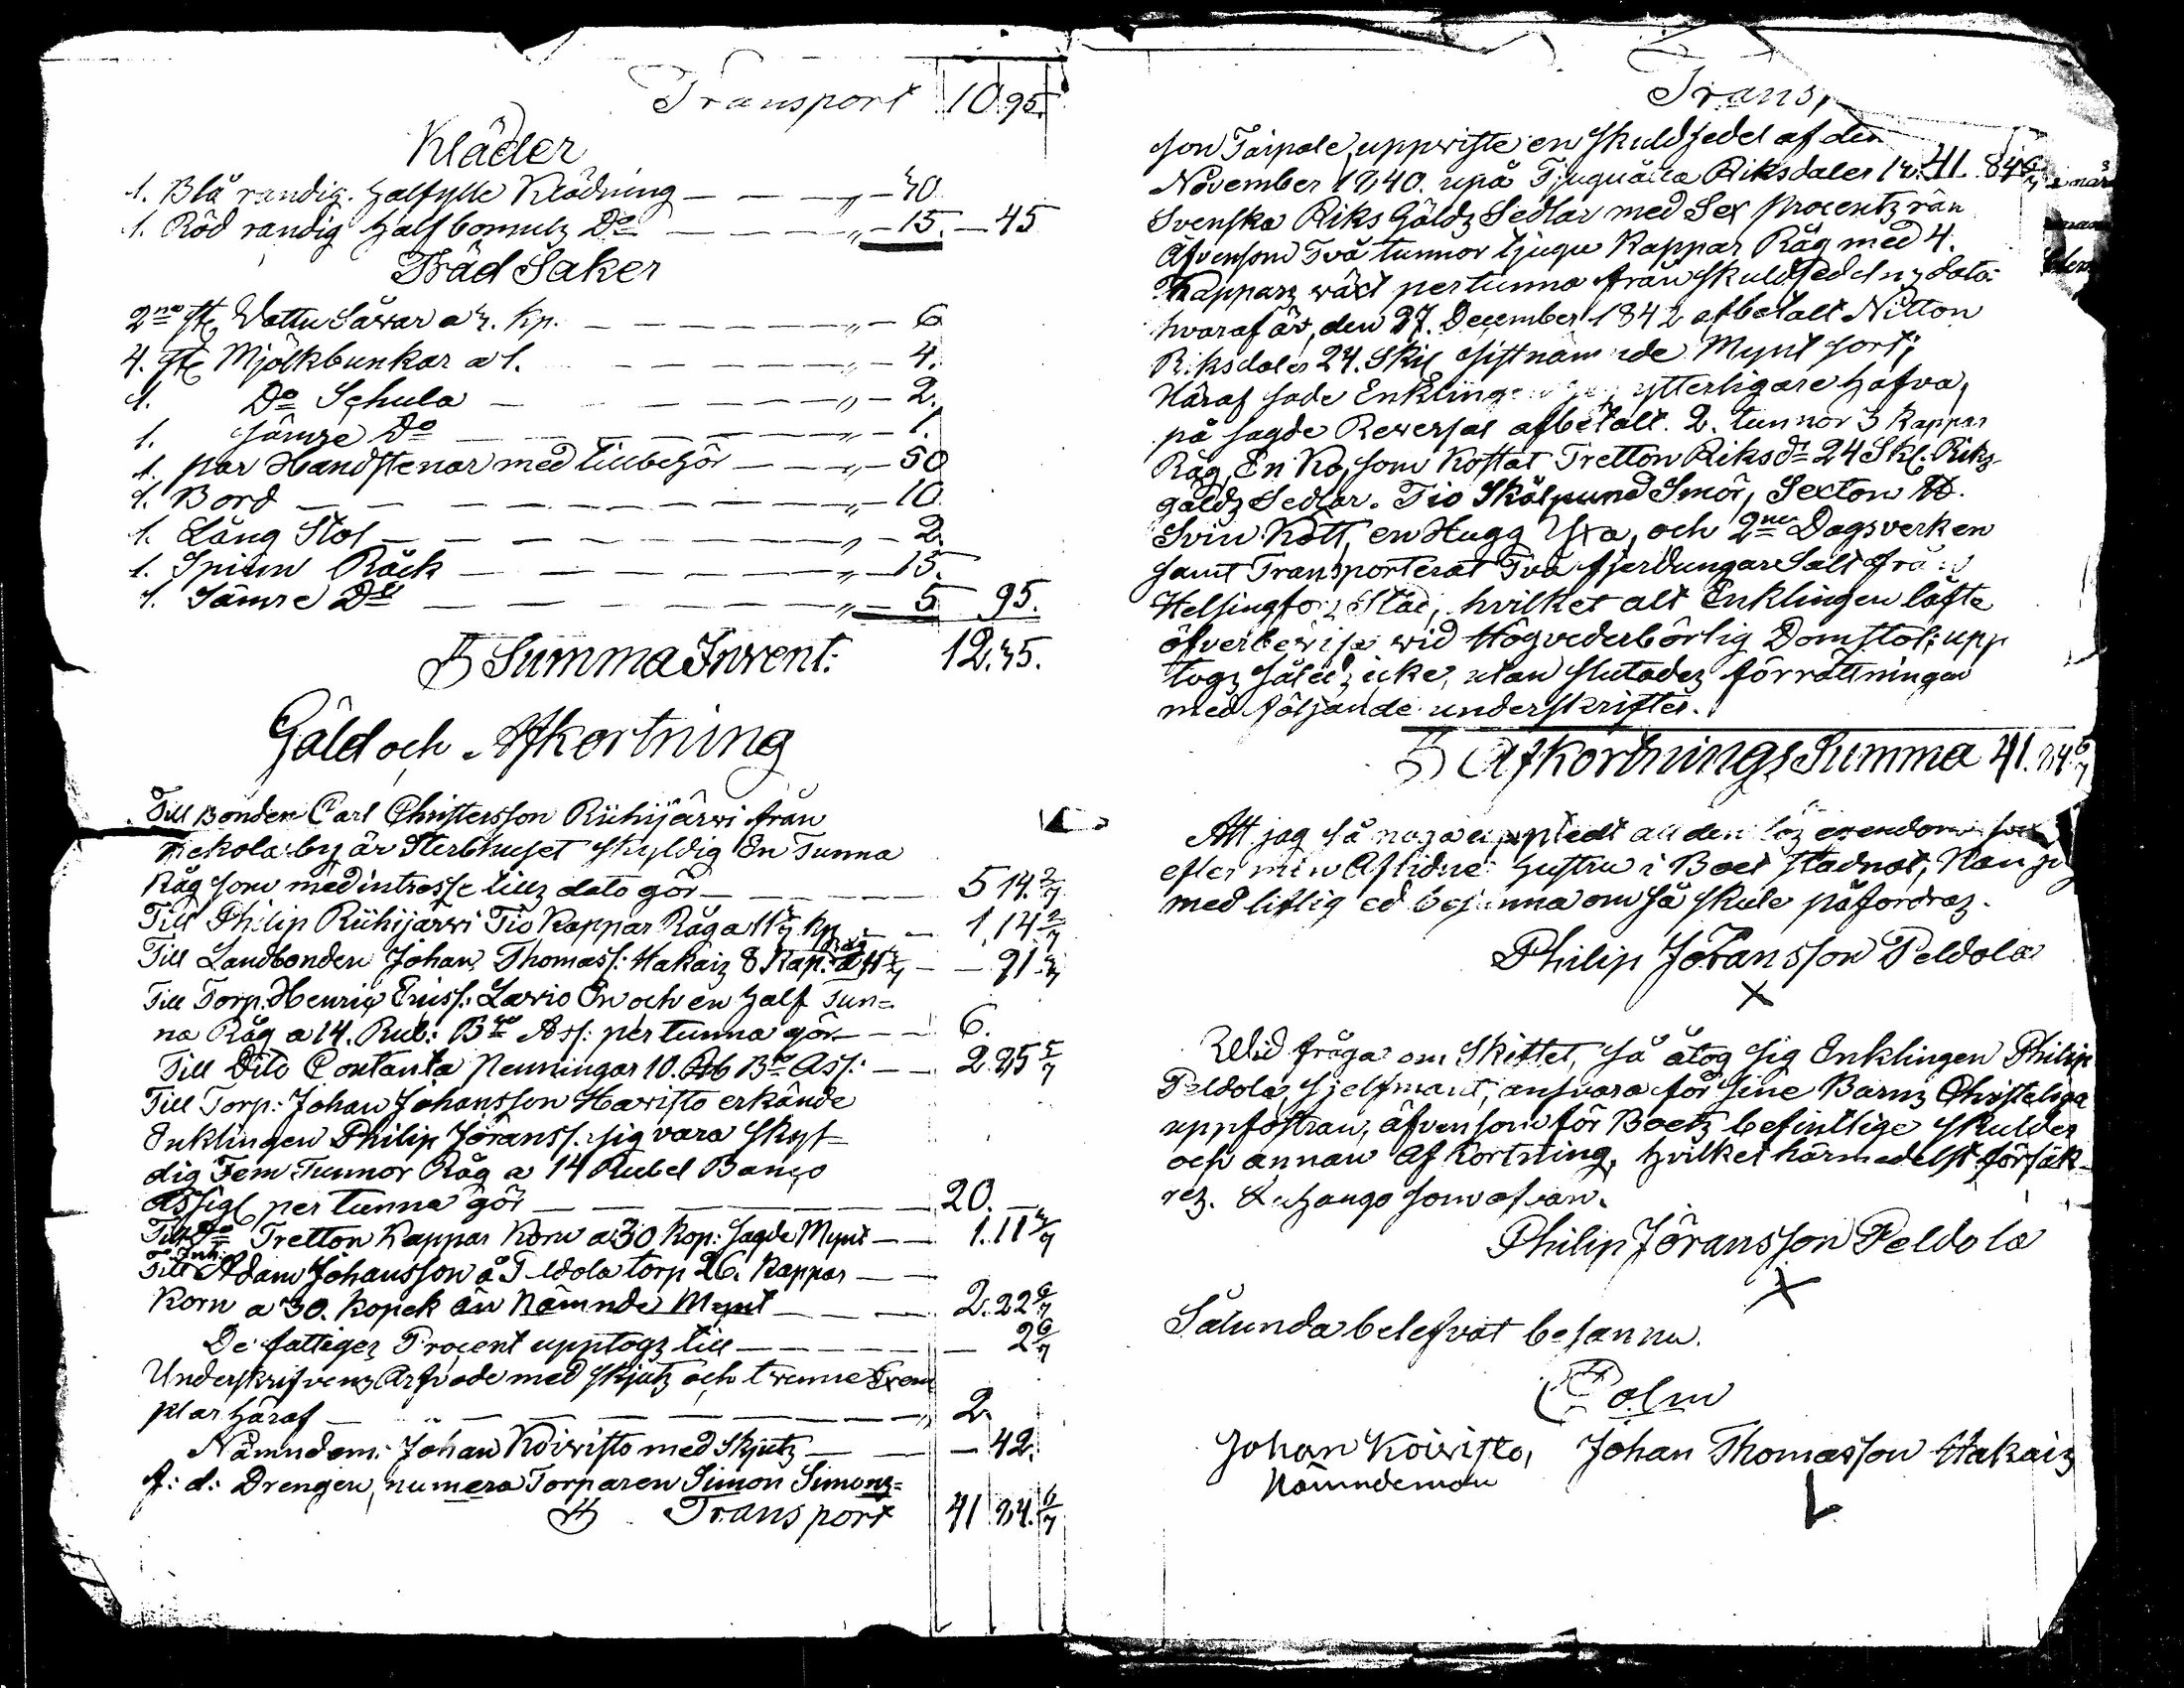 Transport 10.95.
Kläder
1. Blå randig halfylle Klädning — — „ — 30
1. Röd randig half bomulz Do — — — „ — 15. — 45
Träd Saker
2ne st. Vattu Såwar a 3. Kp. — — — — „ — 6
4. st. Mjölkbunkar a 1. — — — — „ — 4.
1. Do Schula — — — — „ — 2.
1. Sämre Do — — — — „ — 1.
1. par Handstenar med tillbehör — — „ — 50
1. Bord — — — — — — „ — 10.
1. Lång Stol — — — — — „ — 2.
1. Spinn Råck — — — — — „ — 15.
1. Sämre Do — — — — — „ — 5 95.
Summa Invent: 12.35.
Gäld och Afkortning
Till Bonden Carl Christersson Riihijärwi från
nekola by är Sterbhuset skyldig En Tunna
Råg som med intresse tillz dato gör — — — 5 14 2/7
Till Philip Riihijärwi Tio Kappar Råg a 11 3/7 kp — — 1.14 2/7
Till Landbonden Johan Thomass: Hakaiz 8 Kap: Råg a 11 3/7 — — 91 3/7
Till Torp. Henric Ericss: Lavio En och en half Tun=
na Råg a 14. Rub: Bco Ass: per tunna gör — — 6.
Till Dito Contanta Penningar 10. Rb Bco Ass: — — 2.85 5/7
Till Torp: Johan Johansson Hawisto erkände
Enklingen Philip Jöranss. sig vara skyl=
dig Fem Tunnor Råg a 14 Rubel Banco
Assigl per tunna gör — — — — — 20. —
Till Do Tretton Kappar Korn a 30 kop: sagde Mynt — — 1.11 3/7
Till Inh: Adam Johansson å Peldola torp 26. Kappar — —
Korn a 30. Kopek än Nämnde Mynt — — — 2.22 6/7
De fattiges Procent upptogz till — — — — — 2 6/7
Underskrifvenz Arfvode med skjutz och trenne Exem
plar häraf — — — — — — — „ 2.
Nämndem: Johan Koiwisto med Skjutz — — — 42.
f: d: Drengen, numera Torparen Simon Simonz=
Transport 41 84. 6/7
Transp
son Taipale uppwiste en skuldsedel af den
November 1840. upå Tjuguåtta Riksdaler 41. 84 6/7
Svenska Riks Gäldz Sedlar med Sex procentz rän
Afvensom Två tunnor tjugu Kappar Råg med 4.
Kapparz wäxt per tunna från skuldsedelnz dato:
hvaraf är, den 27. December 1842 afbetalt Nitton
Riksdaler 24. Skil sistnämnde Mynt sort;
Häraf sade Enklingen ytterligare hafva,
på sagde Reversal afbetalt. 2. tunnor 3 Kappar
Råg, En Ko, som Kostat Tretton Riksdr 24 Skl. Riks-
gäldz Sedlar. Tio Skålpund Smör, Sexton ℔.
Svin Kött, en Hugg Yxa, och 2ne Dagsverken
samt Transporterat Två fjerdungar Salt från
Helsingforz Stad, hvilket alt Enklingen låfte
öfverbewisa wid Högvederbörlig Domstol; upp
togz såledz icke, utan slutadez förrättningen
med följande underskrifter.
Afkortnings Summa 41. 84 6/7
Att jag så noga upptedt all den löz egendom som
efter min Aflidne hustru i Boet stadnat, Kan jag
med liflig ed besanna om så skule påfordraz.
Philip Jöransson Peldola
X
Wid fråga om Skiftet, så åtog sig Enklingen Philip
Peldola, sjelfmant, ansvara för sine Barnz Christeliga
uppfostran, äfvensom för Boetz befintlige skulder
och annan Afkortning, hvilket härmedelst försäk-
rez. Luhango som ofvan.
Philip Jöransson Peldola
X
Sålunda belefvat besanna.
Colm
Johan Koiwisto, Johan Thomasson Hakaiz
Nämndeman